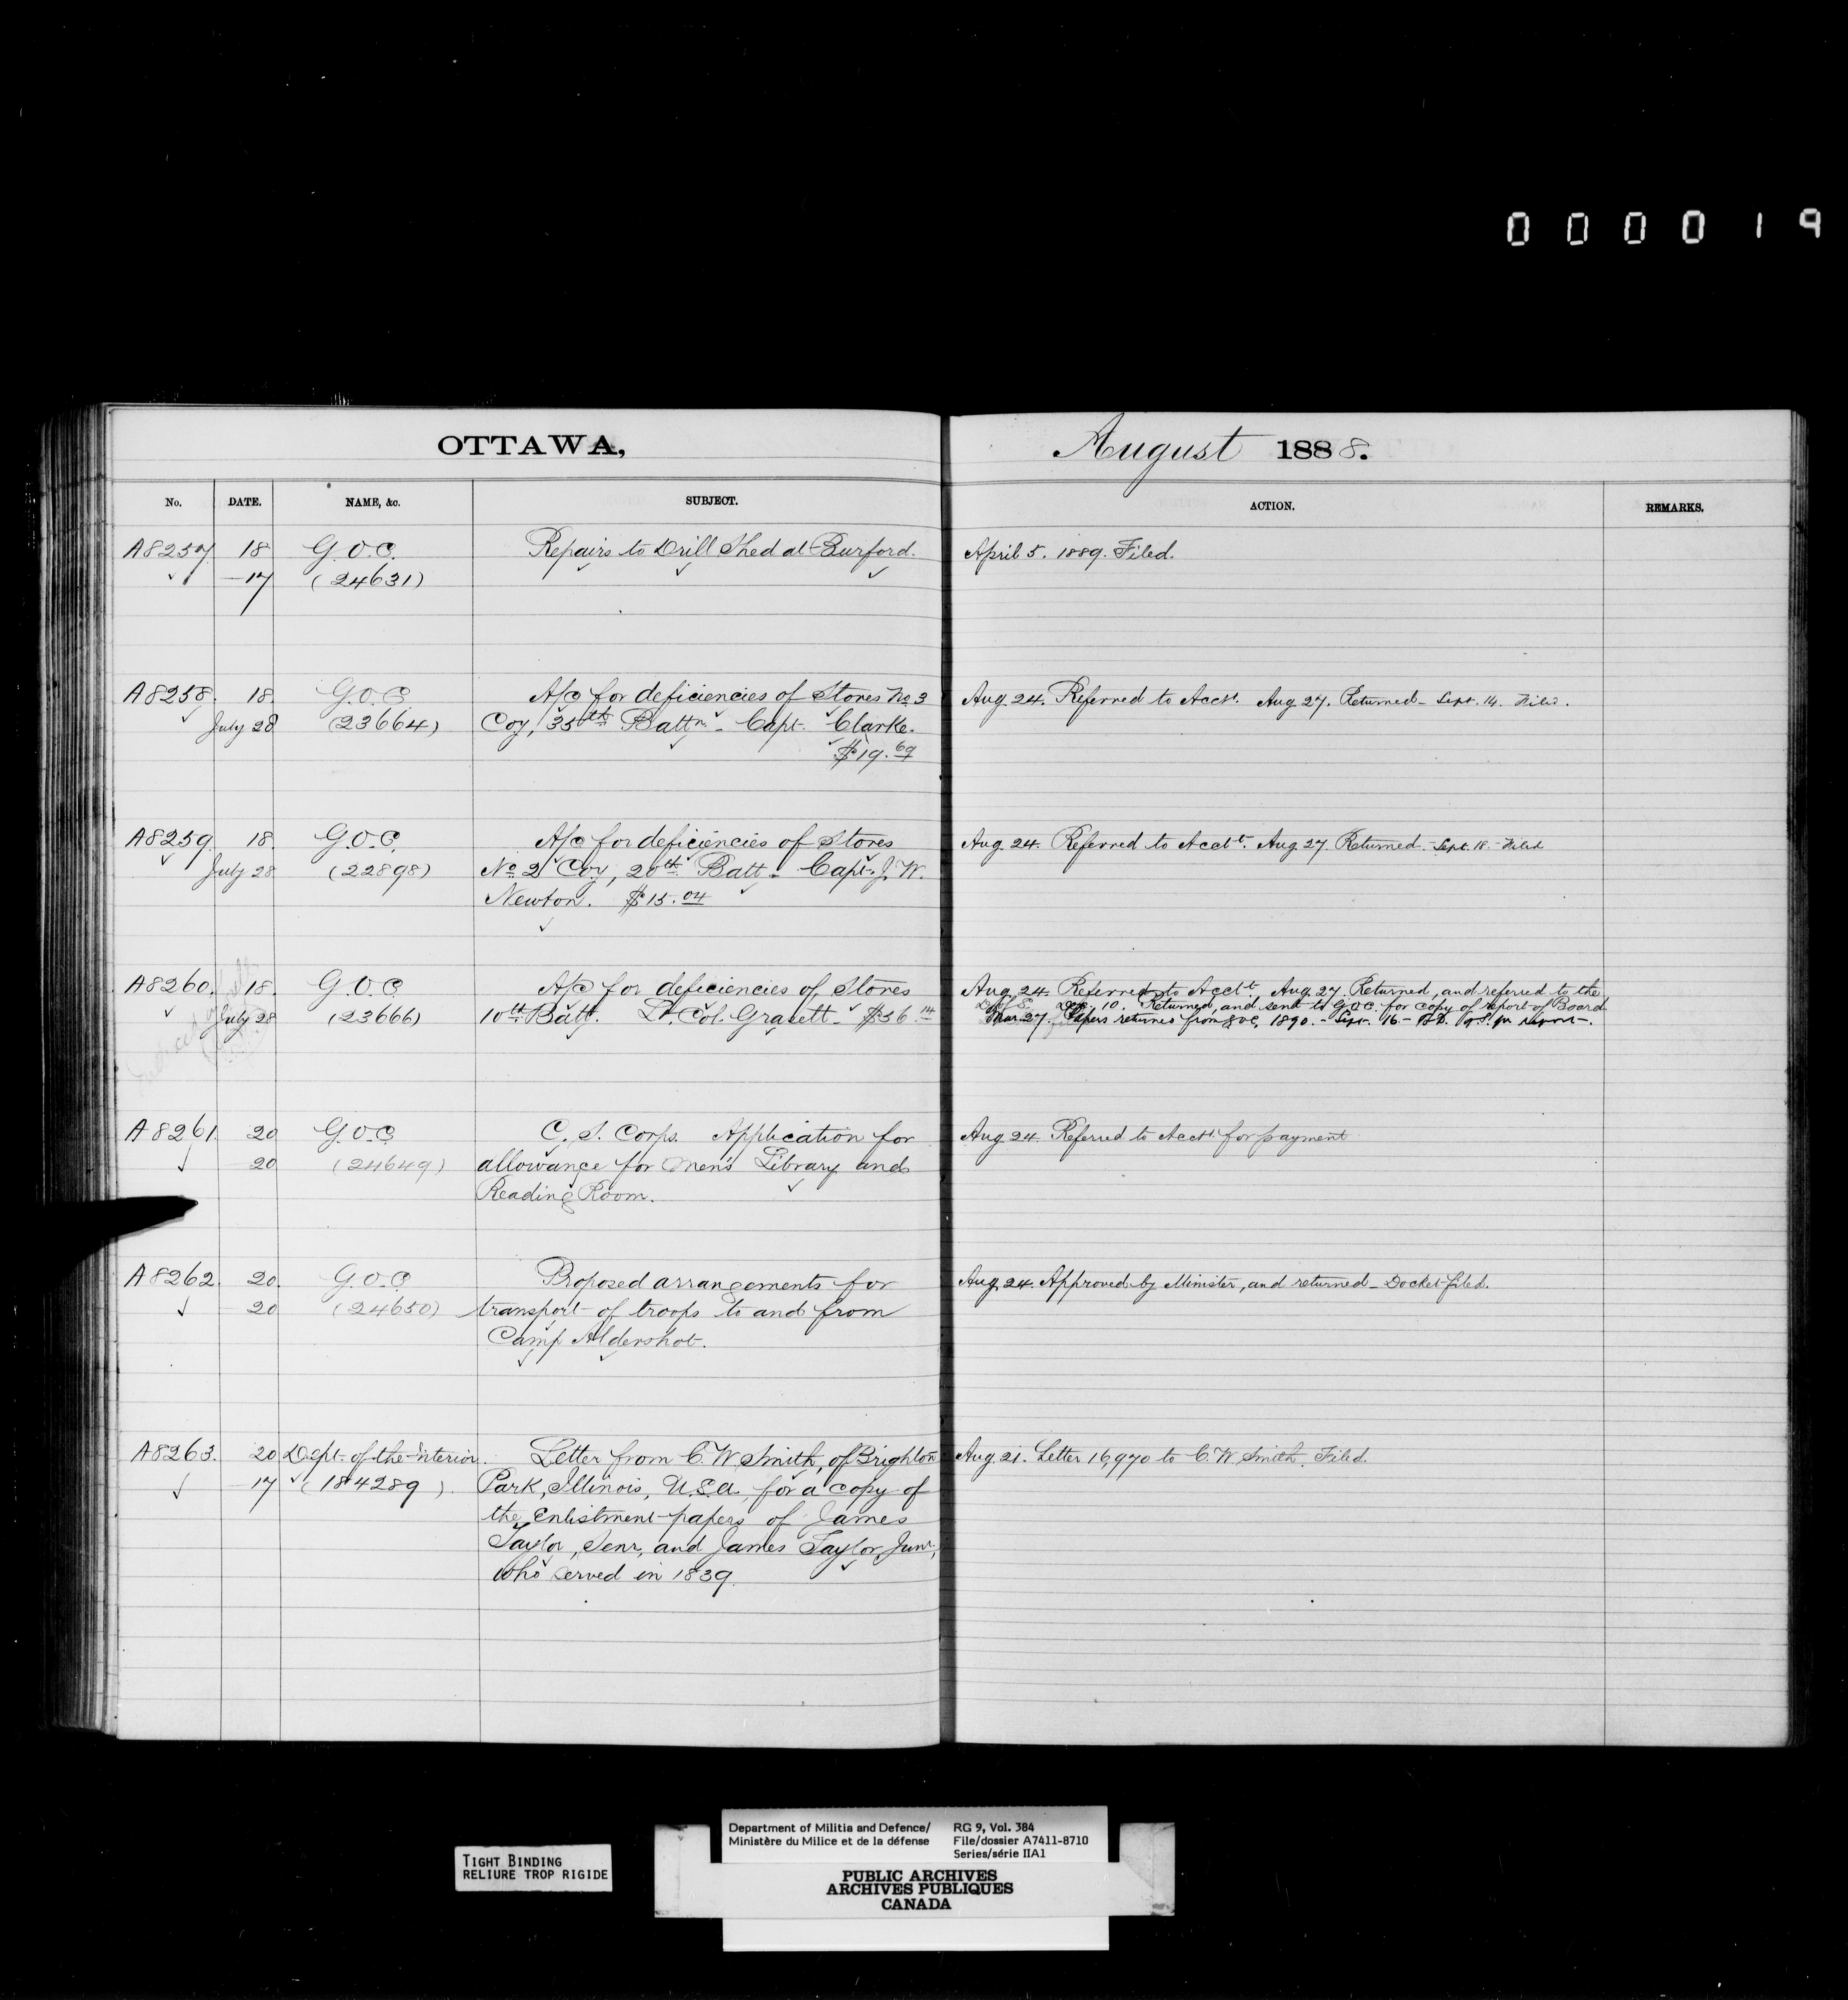 0 0 0 0 1 9
OTTAWA, August 1888.
No. DATE. NAME, &c. SUBJECT. ACTION. REMARKS.
A8257. 18 G.O.C. Repairs to Drill Shed at Burford. April 5. 1889. Filed.
17 (24631)
A8258. 18. G.O.C. A/c for deficiencies of Stores No 3 Aug. 24. Referred to Acctt. Aug 27. Returned - Sept. 14. Filed.
July 28 (23664) Coy, 35th Battn. - Capt. Clarke.
$19.69
A8259. 18. G.O.C. A/c for deficiencies of Stores Aug. 24. Referred to Acctt. Aug 27 Returned. - Sept. 18 - Filed
July 28 (22898) No 2 Coy, 20th Batt - Capt. J. W.
Newton. $15.04
A8260. 18. G.O.C. A/c for deficiencies of Stores Aug. 24. Referred to Acctt Aug 27 Returned, and referred to the
July 28 (23666) 10th Batt. Lt. Col. Grasett - $36.14 D. of S. Dec. 10. Returned, and sent to G.O.C. for copy of report of Board
Mar 27. Papers returned from G.O.C, 1890. - Sept. 16 - for report -.
A8261. 20 G.O.C. C. S. Corps. Application for Aug. 24. Referred to Acctt. for payment
20 (24649) allowance for men's Library and
Reading Room.
A8262. 20. G.O.C. Proposed arrangements for Aug. 24. Approved by Minister, and returned - Docket filed.
20 (24650) transport of troops to and from
Camp Aldershot.
A8263. 20 Dept. of the Interior. Letter from C. W. Smith, of Brighton Aug. 21. Letter 16,970 to C. W. Smith. Filed.
17 (184289) Park, Illinois, U.S.A, for a copy of
the Enlistment papers of James
Taylor, Senr, and James Taylor, Junr,
who served in 1839.
TIGHT BINDING
RELIURE TROP RIGIDE
Department of Militia and Defence/ RG 9, Vol. 384
Ministère du Milice et de la défense File/dossier A7411-8710
Series/série IIA1
PUBLIC ARCHIVES
ARCHIVES PUBLIQUES
CANADA